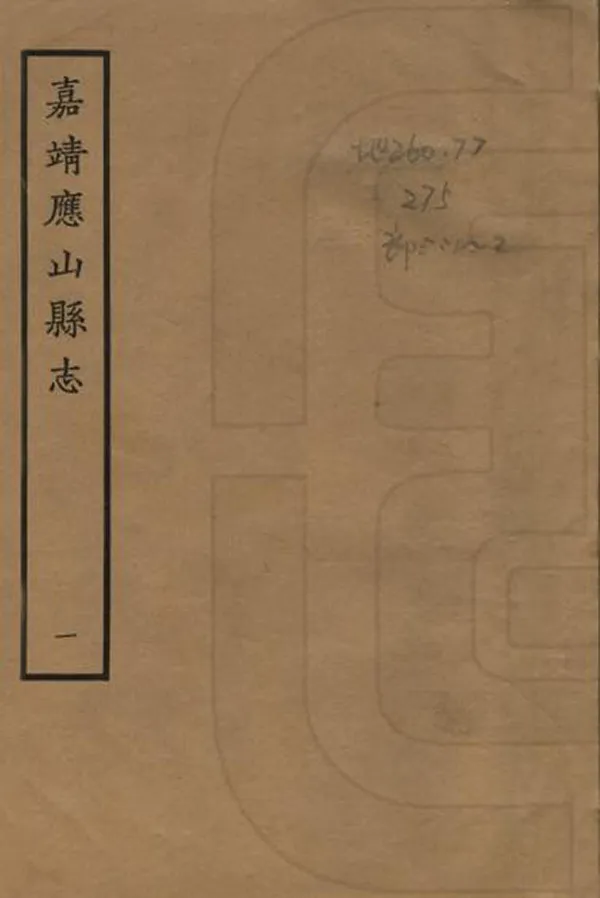 嘉靖應山縣志
一
地260.77
275